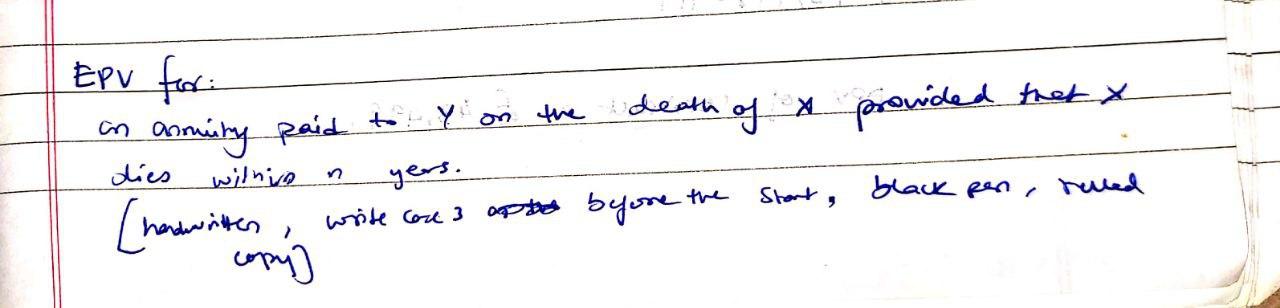 EPV for:
an annuity paid to Y on the death of X provided that X
dies within n years.
[handwritten, write case 3 before the start, black pen, ruled
copy]